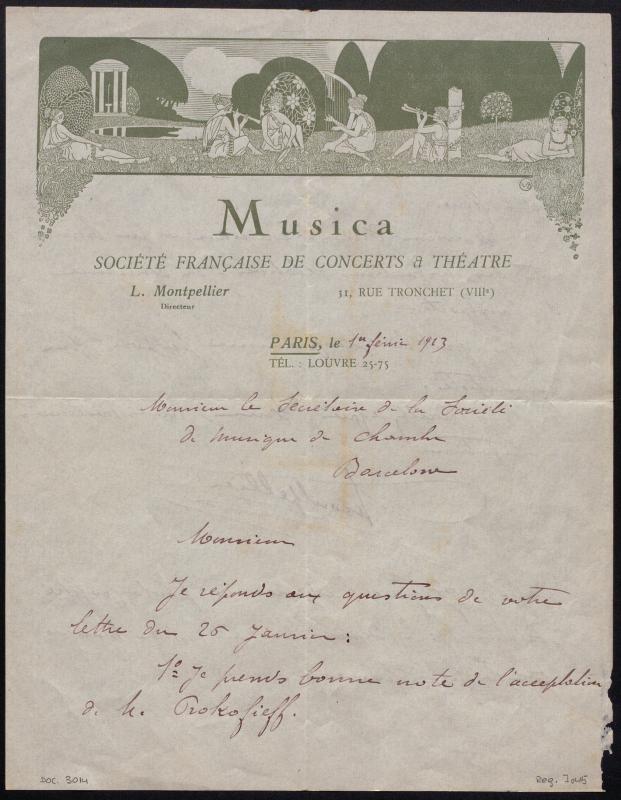 Musica
SOCIÉTÉ FRANÇAISE DE CONCERTS & THÉATRE
L. Montpellier 31, RUE TRONCHET (VIIIe)
Directeur
PARIS, le 1er février 1923
TÉL. : LOUVRE 25-75
Monsieur le Secrétaire de la Société
de musique de chambre
Barcelone
Monsieur
Je réponds aux questions de votre
lettre du 26 Janvier :
1º Je prends bonne note de l'acceptation
de M. Prokofieff.
DOC. 3014 Reg. 7045